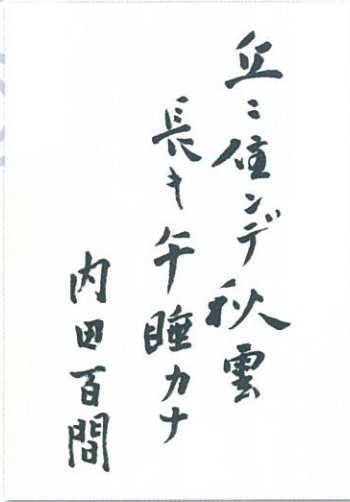 丘ニ住ンデ秋雲
長キ午睡カナ
内田百間